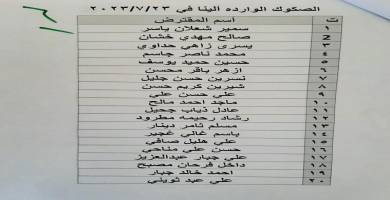 الصكوك الوارده الينا في ٢٠٢٣/٧/٢٣
ت اسم المقترض
١ سمير شعلان ياسر
2 صالح مهدي خشان
٣ يسرى زاهي حداوي
٤ محمد ناصر جاسم
٥ حسين حميد يوسف
٦ ازهر باقر محسن
٧ نسرين حسن جليل
٨ شيرين كريم حسن
٩ علي حسن علي
١٠ ماجد احمد مالح
١١ عادل ذياب جحيل
١٢ رشاد رحيمه مطرود
١٣ مسلم ثامر دينار
١٤ باسم غالي غجير
١٥ علي هليل صافي
١٦ حسن علي مناحي
١٧ علي جبار عبدالعزيز
١٨ داخل فرحان مصبح
١٩ احمد خالد جبار
٢٠ علي عبد ثويني